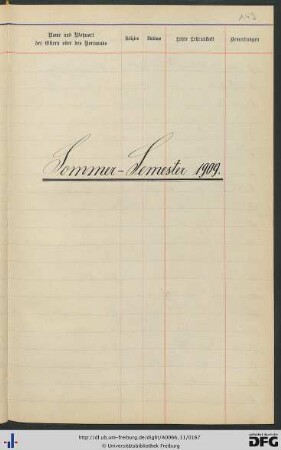 143
Name und Wohnort
der Eltern oder des Vormunds
Religion
Studium
Letzte Lehranstalt
Bemerkungen
Sommer-Semester 1909.
http://dl.ub.uni-freiburg.de/diglit/A0066_11/0167
© Universitätsbibliothek Freiburg